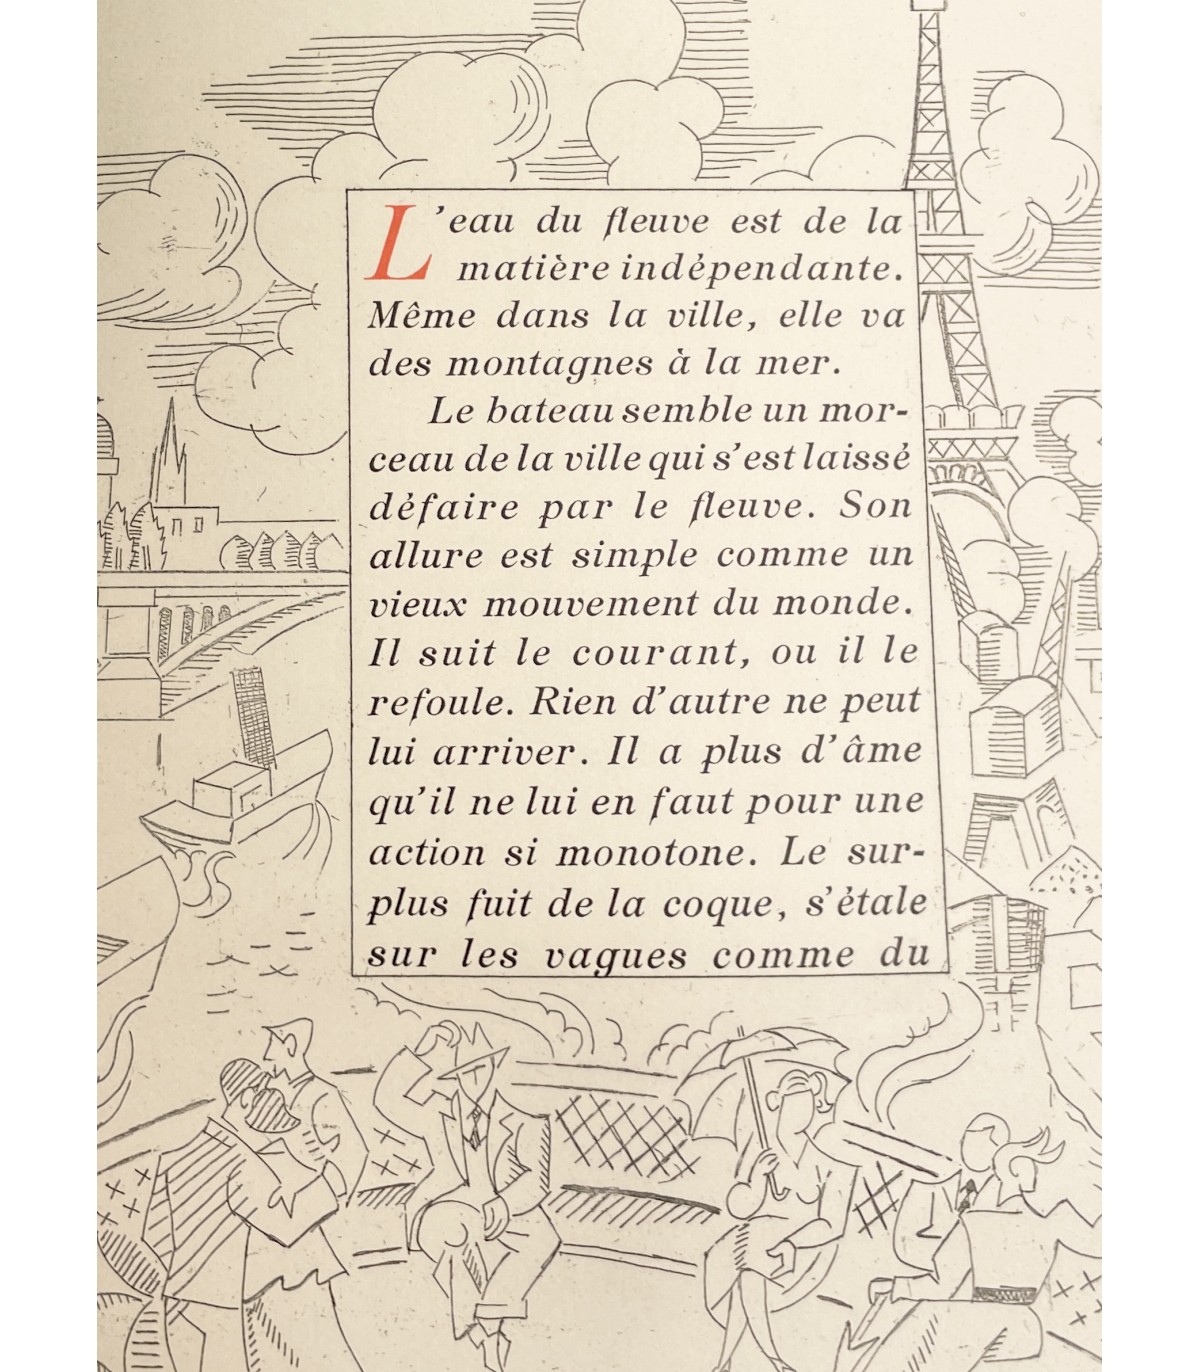 L'eau du fleuve est de la
matière indépendante.
Même dans la ville, elle va
des montagnes à la mer.
Le bateau semble un mor-
ceau de la ville qui s'est laissé
défaire par le fleuve. Son
allure est simple comme un
vieux mouvement du monde.
Il suit le courant, ou il le
refoule. Rien d'autre ne peut
lui arriver. Il a plus d'âme
qu'il ne lui en faut pour une
action si monotone. Le sur-
plus fuit de la coque, s'étale
sur les vagues comme du